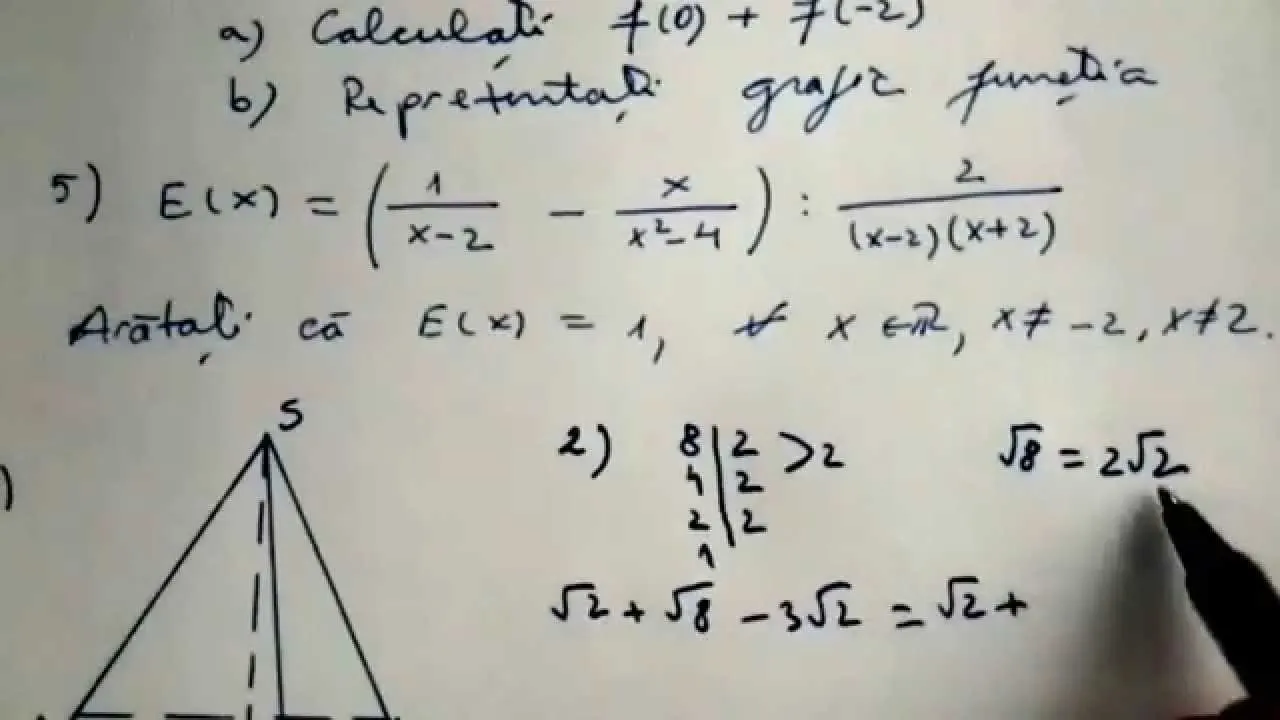 a) Calculați f(0) + f(-2)
b) Reprezentați grafic funcția
5) E(x) = (1/(x-2) - x/(x²-4)) : 2/((x-2)(x+2))
Arătați că E(x) = 1, ∀ x ∈ ℝ, x ≠ -2, x ≠ 2.
S
)
2) 8|2 >2 √8 = 2√2
4|2
2|2
1
√2 + √8 - 3√2 = √2 +